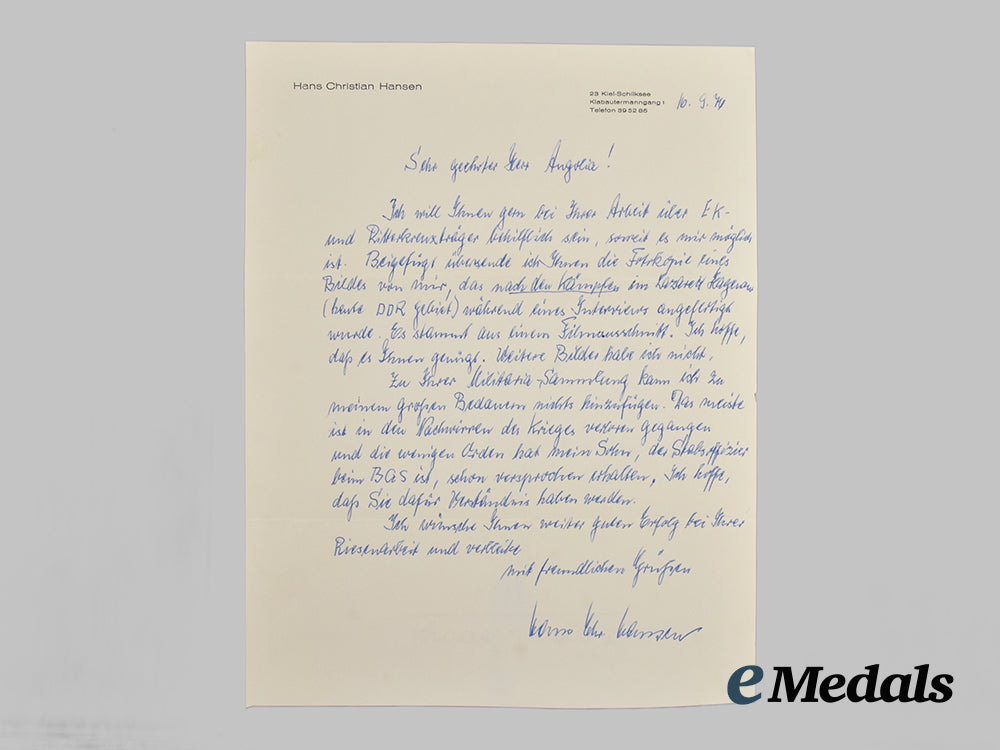 Hans Christian Hansen
23 Kiel-Schilksee
Klabautermanngang 1
Telefon 39 32 85
16. 9. 74
Sehr geehrter Herr Angolia!
Ich will Ihnen gern bei Ihrer Arbeit über EK-
und Ritterkreuzträger behilflich sein, soweit es mir möglich
ist. Beigefügt übersende ich Ihnen die Fotokopie eines
Bildes von mir, das nach den Kämpfen im Lazarett Hagenow
(heute DDR Gebiet) während eines Interviews angefertigt
wurde. Es stammt aus einem Filmausschnitt. Ich hoffe,
daß es Ihnen genügt. Weitere Bilder habe ich nicht.
Zu Ihrer Militaria-Sammlung kann ich zu
meinem großen Bedauern nichts hinzufügen. Das meiste
ist in den Nachwirren des Krieges verloren gegangen
und die wenigen Orden hat mein Sohn, der Stabsoffizier
beim BGS ist, schon versprochen erhalten. Ich hoffe,
daß Sie dafür Verständnis haben werden.
Ich wünsche Ihnen weiter guten Erfolg bei Ihrer
Riesenarbeit und verbleibe
mit freundlichen Grüßen
Hans Chr. Hansen
eMedals